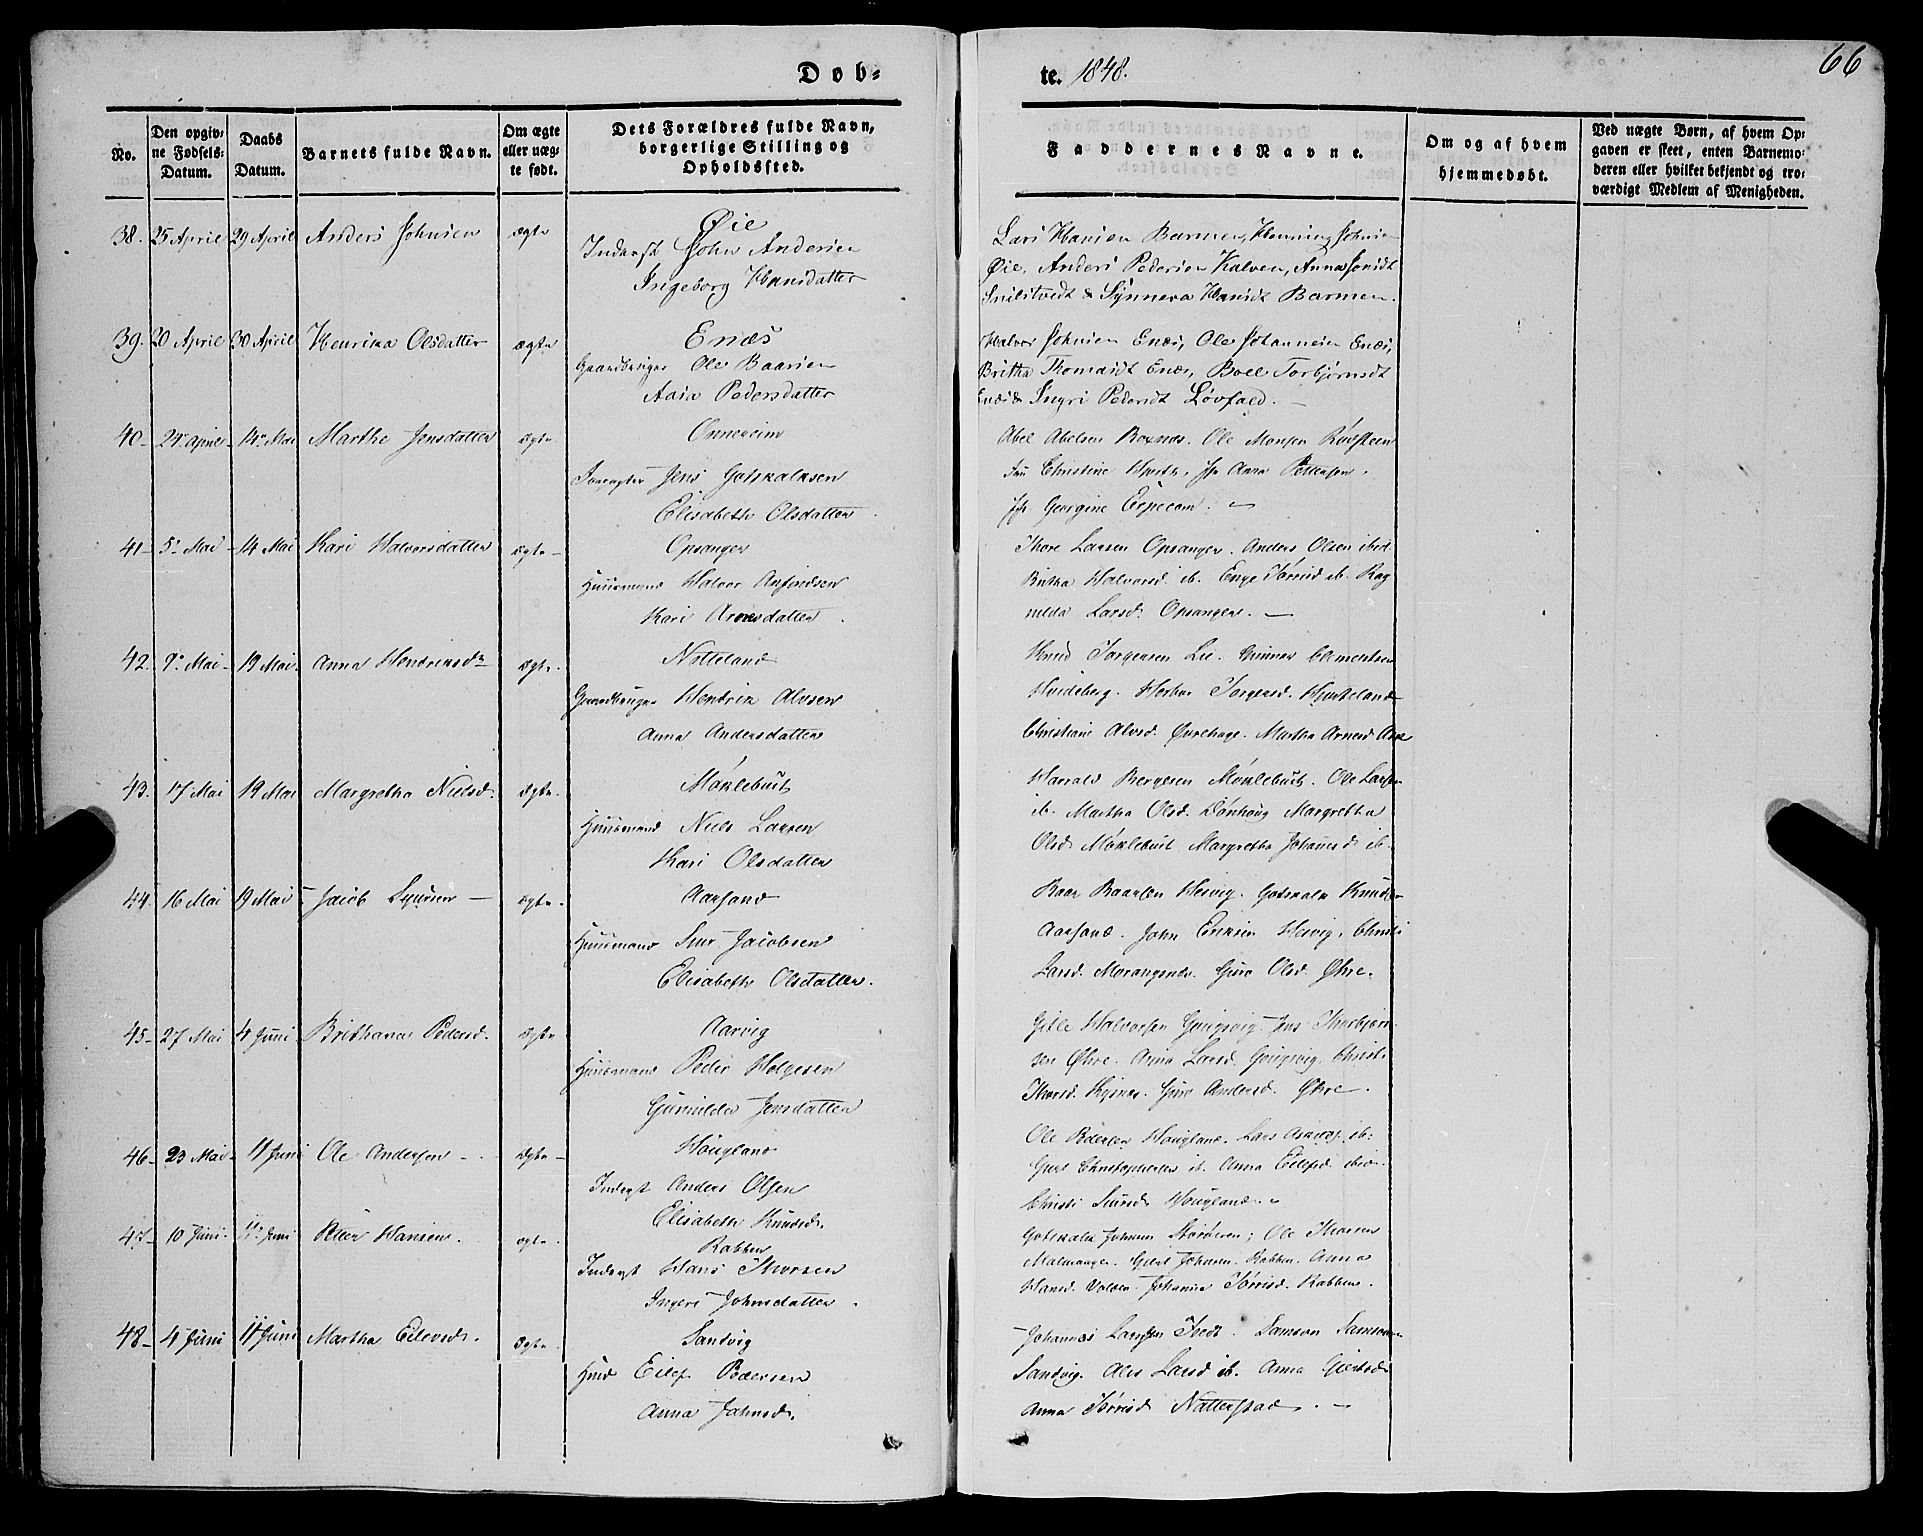 Døb=
te. 1848.
66
No.
Den opgiv=
ne Fødsels=
Datum.
Daabs
Datum.
Barnets fulde Navn.
Om ægte
eller uæg=
te født.
Dets Forældres fulde Navn,
borgerlige Stilling og
Opholdssted.
Faddernes Navne.
Om og af hvem
hjemmedøbt.
Ved uægte Børn, af hvem Op=
gaven er skeet, enten Barnemo=
deren eller hvilket bekjendt og tro=
værdigt Medlem af Menigheden.
38. 25 April 29 April Anders Johnsen ægte
Øie
Inderst John Andersen
Ingeborg Hansdatter
Lars Hansen Barmen, Henning Johns
Øie, Anders Pedersen Kalven, Anna
Snilstvedt & Synneva Hansdt Barmen.
39. 20 April 30 April Henrika Olsdatter ægte
Enæs
Gaardbruger Ole Baarsen
Pedersdatter
Halvor Johnsen Enæs, Ole Johannesen Enæs,
Britha Thomasdt Enæs, Boel Torbjørnsdt
Enæs & Ingri Pedersdt Løvfald.
40 24 April 14 Mai Marthe Jensdatter ægte
Onnereim
Jens Gotskalksen
Elisabeth Olsdatter
Abel Abelsen Ole Monsen
Christine Anna Pettersen.
Georgine
41 5 Mai 14 Mai Kari Halvorsdatter ægte
Opsanger
Huusmand Halvor Anfindsen
Kari Arnesdatter
Thore Larsen Opsanger. Anders Olsen ibid
Britha Halvorsd. ib. Enge Tørrisd ib. Rag
nilda Larsd. Opsanger.
42. 9 Mai 19 Mai Anna Hendriksdr ægte
Netteland
Gaardbruger Hendrik Alvsen
Anna Andersdatter
Knud Torgersen Lie. Gunnar Clementsen
Hvideberg. Torgersd. Hjorteland
Christiane Alvsd. Øvrehage. Martha Arnesd
43. 17 Mai 19 Mai Margretha Nielsd. ægte
Møklebust
Huusmand Niels Larsen
Kari Olsdatter
Harrald Bergesen Møklebust. Ole Larsen
ib. Martha Olsd. Dønhoug Margretha
Olsd. Møklebust Margretha Johannesd ib.
44. 16 Mai 19 Mai Jacob Sjursen ægte
Aarsand
Huusmand Siur Jacobsen
Elisabeth Olsdatter.
Baar Baarsen Hesvig. Gotskalk Knudsen
Aarsand. John Eriksen Hesvig. Christi
Larsd. Morangsnes. Guro Olsd. Øhre.
45 27 Mai 4 Juni Brithana Pedersd. ægte
Aarvig
Huusmand Peder Helgesen
Gunnilda Jensdatter
Gitle Halvorsen Gougsvig. Jens Thorbjørn
sen Øhre. Anna Larsd. Gougsvig. Christi
Thorsd. Guro Andersd. Øhre.
46 23 Mai 11 Juni Ole Andersen ægte
Hougland
Inderst Anders Olsen
Elisabeth Knudsd.
Ole Pedersen Hougland. Lars ib:
Guri Christophersen ib. Anna Eilefsd.
Christi Siursd. Hougland.
47 10 Juni 11 Juni Peter Hansen. ægte
Rabben
Inderst Hans Thorsen
Ingeri Johnsdatter.
Gotskalk Johnsen Storøen; Ole Thorsen
Malmanger. Johnsen Rabben. Anna
Hansd. Valen. Johanna Tørrisd. Rabben.
48 4 Juni 11 Juni Martha Eilevsd. ægte
Sandvig
Huusd Eilef Pedersen
Anna Johnsd.
Johannes Larsen Tvedt. Samson Samsonsen
Sandvig. Ales Larsd ib. Anna Giertsd
Anna Tørrisd Natterstad.